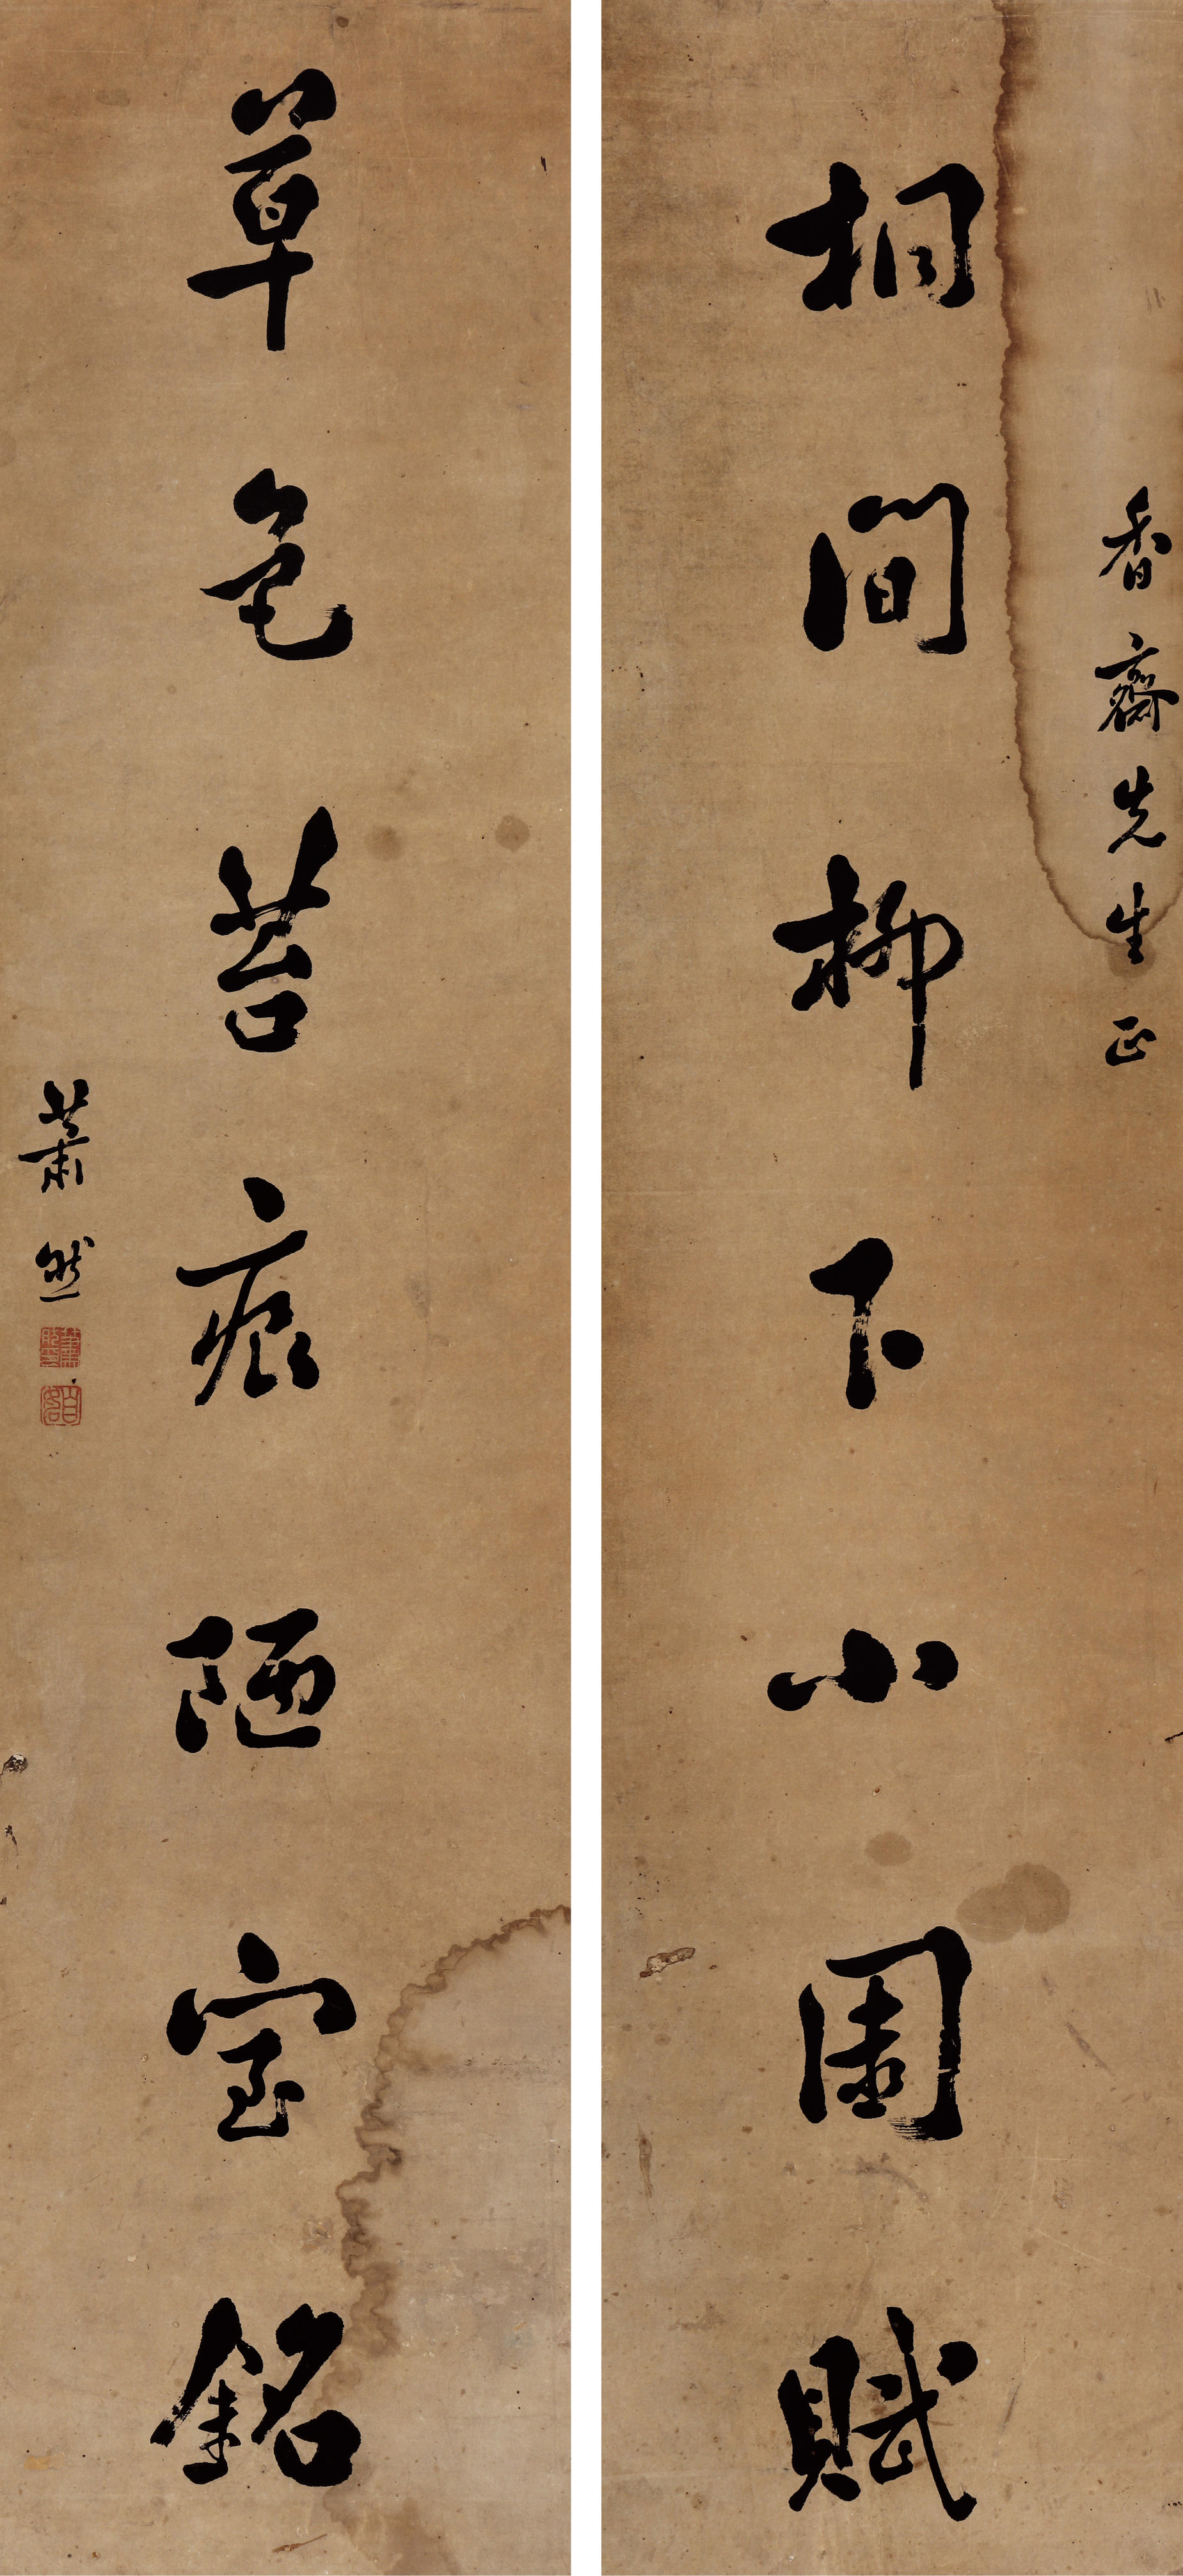 香齋先生正
桐間柳下小園賦
草色苔痕陋室銘
蕭然